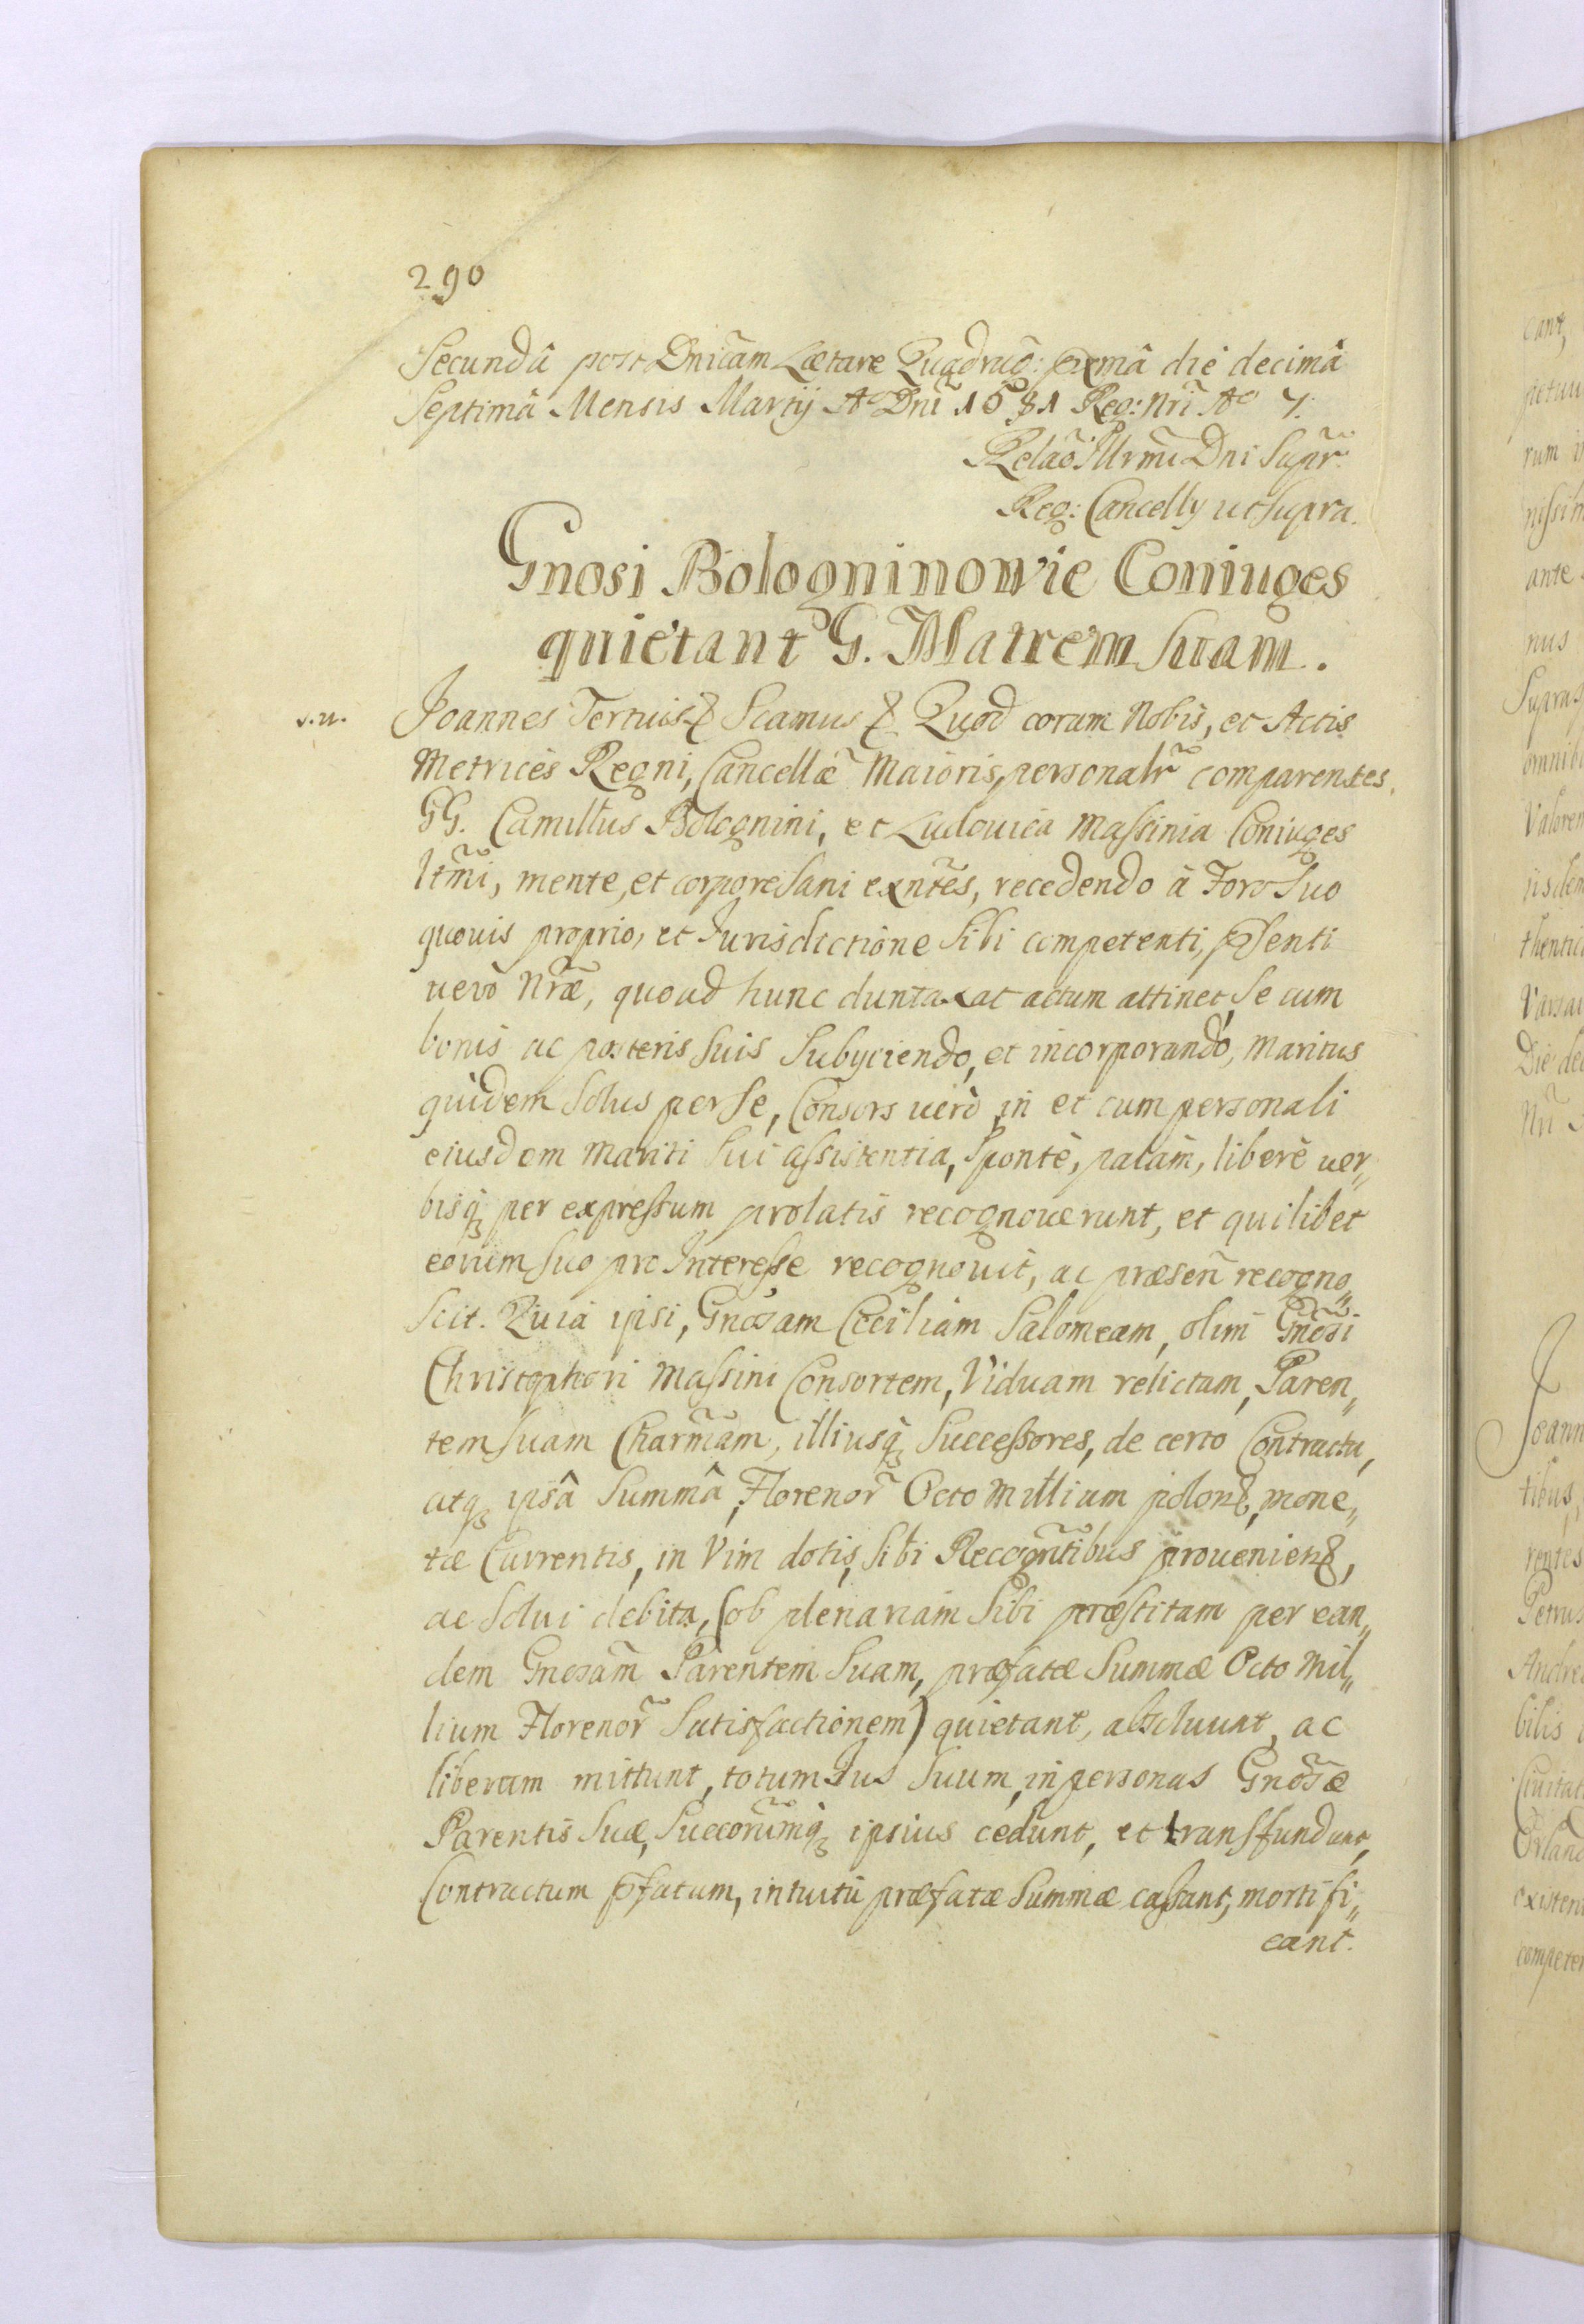 290
Secundâ post Dnicam Lætare Quadrag: pxmâ die decimâ
Septimâ Mensis Martij A° Dni 1681 Reg: Nri A° 7.
Relaõ Illrmi Dni Supr
Reg: Cancelly ut supra.
Gnosi Bologninowie Coniuges
quietant G. Matrem suam.
v.u. Joannes Tertius & Scamus & Quod coram Nobis, et Actis
Metrices Regni, Cancellæ Maioris, personalr comparentes,
GG. Camillus Bolognini, et Ludouica Massinia Coniuges
ltmi, mente, et corpore sani exntes, recedendo â Foro suo
quouis proprio, et Jurisdictione sibi competenti, pſenti
uero Nræ, quoad hunc duntaxat actum attinet, se cum
bonis ac posteris suis subyciendo, et incorporando, maritus
quidem solus per se, Consors uerò in et cum personali
eiusdem mariti sui assistentia, Spontè, palàm, liberè uer„
bisq; per expressum prolatis recognouerunt, et quilibet
eorum suo pro Interesse recognouit, ac præsen recogno„
scit. Quia ipsi, Gnosam Cæciliam Salomeam, olim Gnosi
Christophori Massini Consortem, Viduam relictam, Paren„
tem suam Charmam, illiusq; Successores, de certo Contractu,
atq; ipsâ Summâ, Florenor Octo Millium polon&, mone„
tæ Currentis, in Vim dotis, sibi Recogntibus prouenien&,
ac solui debita, (ob plenariam sibi præstitam per ean„
dem Gnosam Parentem Suam, præfatæ Summæ Octo Mil„
lium Florenor Satisfactionem) quietant, absoluunt, ac
liberam mittunt, totum Jus suum, in personas Gnosæ
Parentis Suæ, Succorumq; ipsius cedunt, et transfundunt,
Contractum pfatum, intuitu præfatæ Summæ cassant, mortifi„
cant.